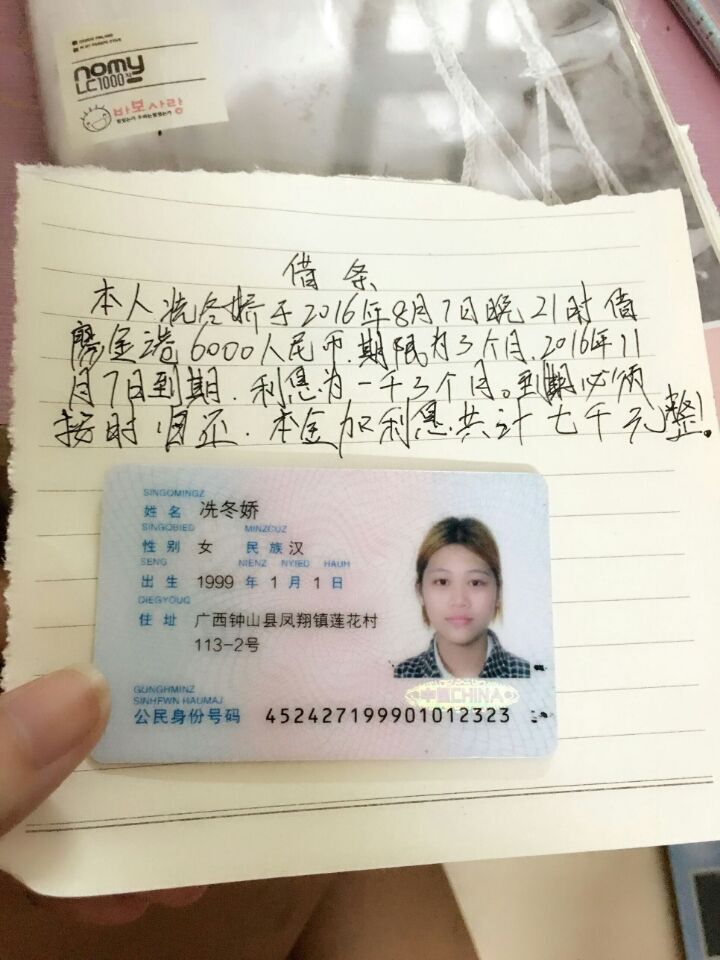 nomy
LC1000
바보사랑
借条
本人冼冬娇于2016年8月7日晚21时借
廖金浩6000人民币.期限为3个月.2016年11
月7日到期.利息为一千3个月。到期必须
按时归还.本金加利息共计七千元整!
SINGQMINGZ
姓名 冼冬娇
SINGQBIED MINZCUZ
性别 女 民族 汉
SENG NIENZ NYIED HAUH
出生 1999 年 1 月 1 日
DIEGYOUQ
住址 广西钟山县凤翔镇莲花村
113-2号
中国CHINA
GUNGHMINZ
SINHFWN HAUMAJ
公民身份号码 452427199901012323